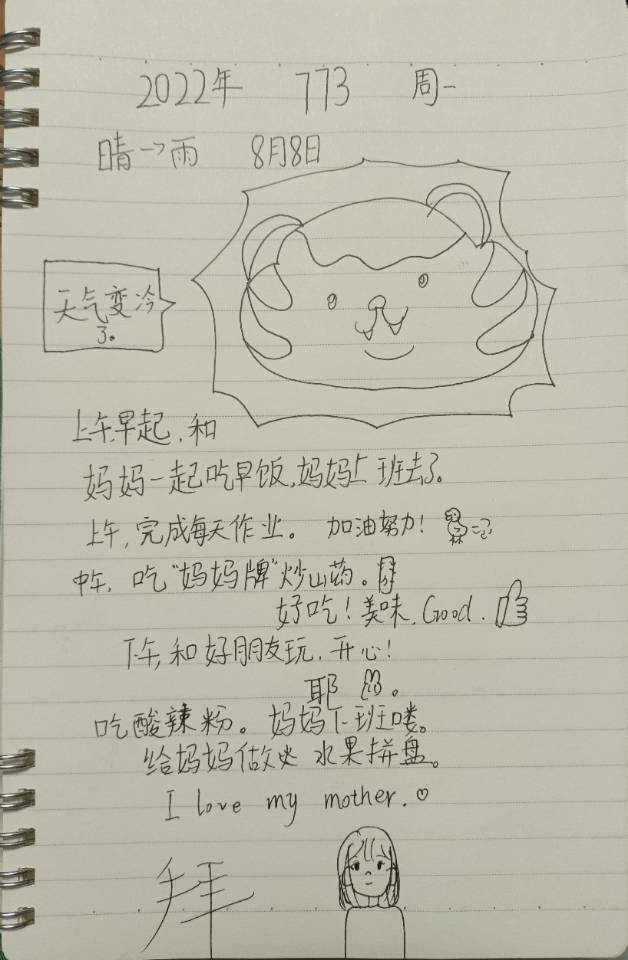 2022年 773 周一
晴→雨 8月8日
天气变冷
了。
上午,早起,和
妈妈一起吃早饭,妈妈上班去了。
上午,完成每天作业。 加油努力!
中午, 吃“妈妈牌”炒山药。
好吃!美味,Good.
下午,和好朋友玩,开心!
耶 。
吃酸辣粉。妈妈下班喽。
给妈妈做 水果拼盘。
I love my mother.♡
拜